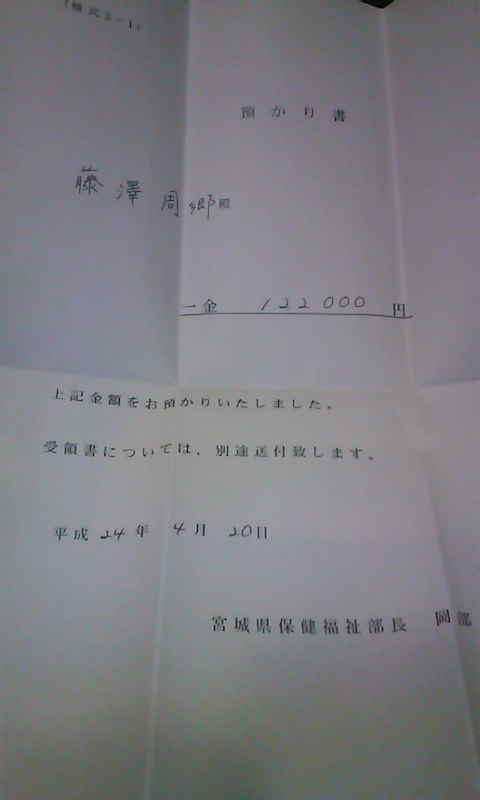 (様式2-1)
預かり書
藤澤周郷殿
一金 122000 円
上記金額をお預かりいたしました。
受領書については、別途送付致します。
平成24年4月20日
宮城県保健福祉部長 岡部